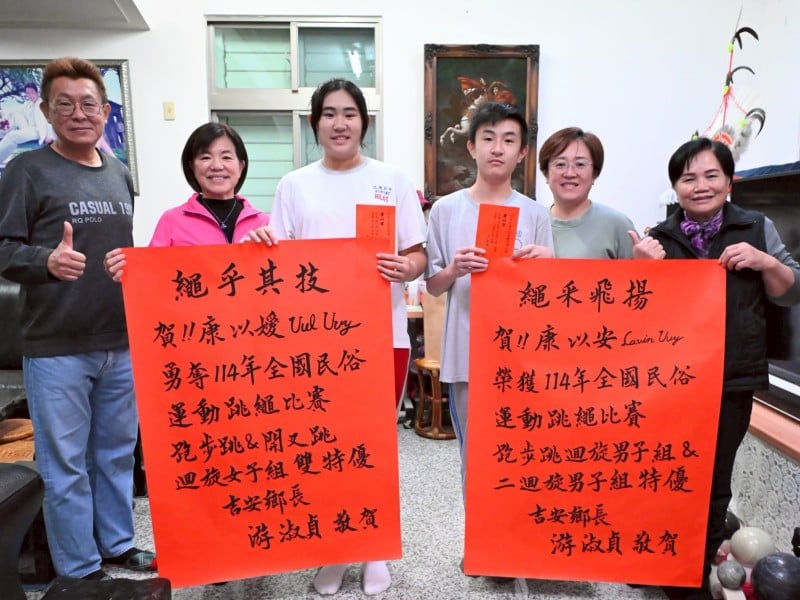 CASUAL 19
RQ POLO
繩乎其技
賀!!康以嫒 Uul Uvy
勇奪114年全國民俗
運動跳繩比賽
跑步跳&開叉跳
迴旋女子組 雙特優
吉安鄉長
游淑貞 敬賀
繩采飛揚
賀!!康以安 Lavin Uvy
榮獲114年全國民俗
運動跳繩比賽
跑步跳迴旋男子組&
二迴旋男子組 特優
吉安鄉長
游淑貞 敬賀